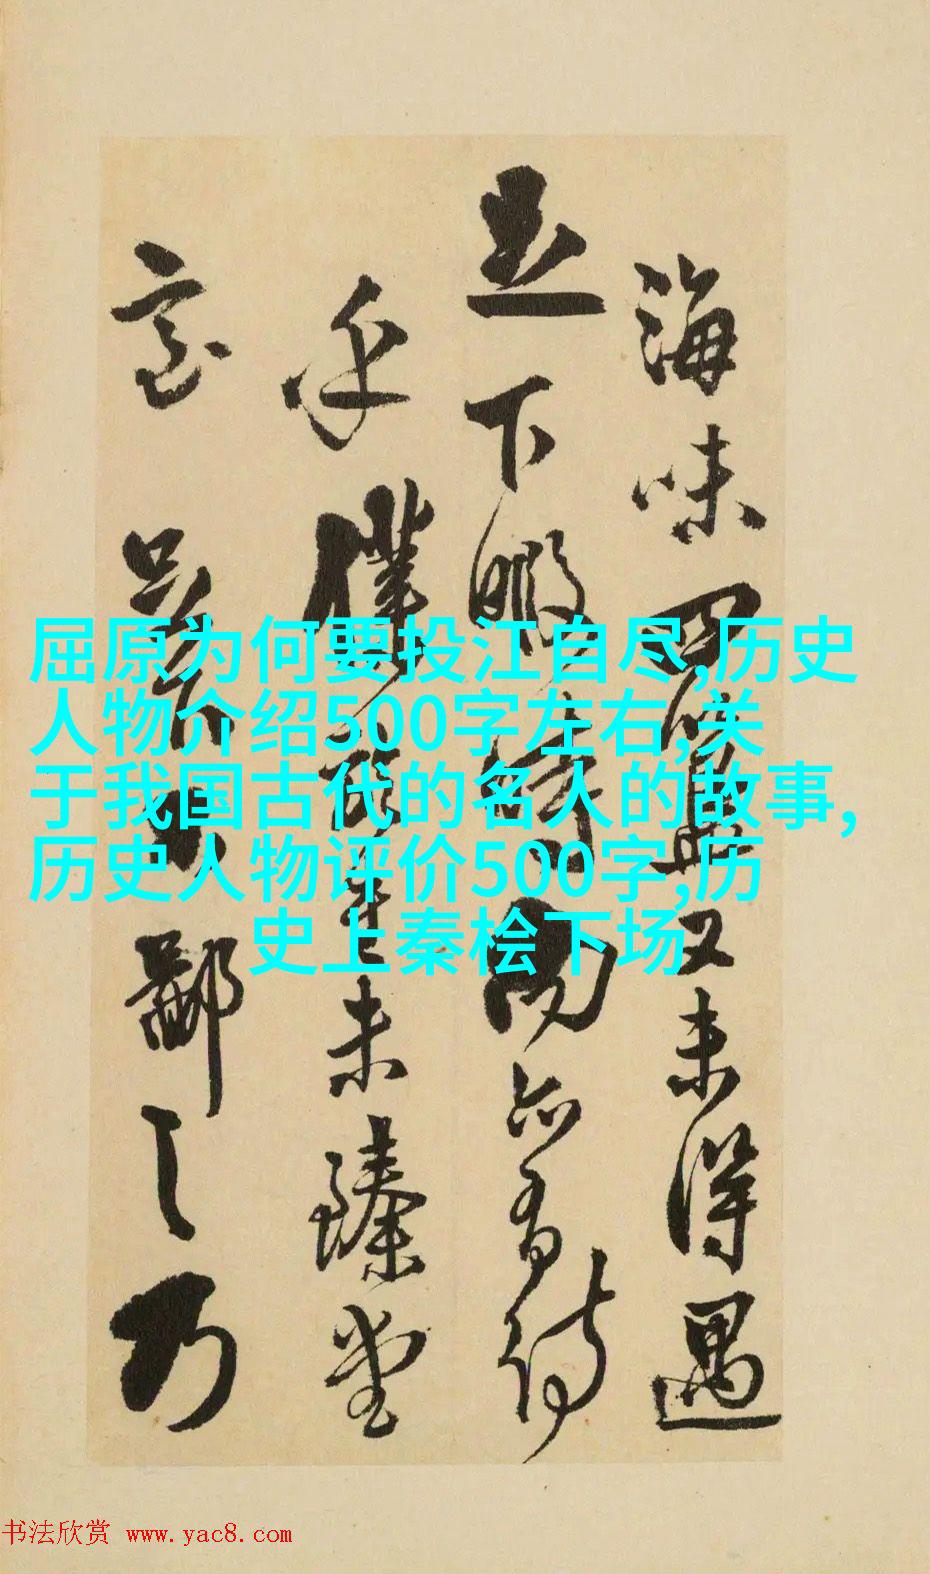 海味四又未得遇
足下暇時
僕未臻堂
室鄙之乃
屈原为何要投江自尽,历史
人物介绍500字左右,关
于我国古代的名人的故事,
历史人物评价500字,历
史上秦桧下场
书法欣赏 www.yac8.com